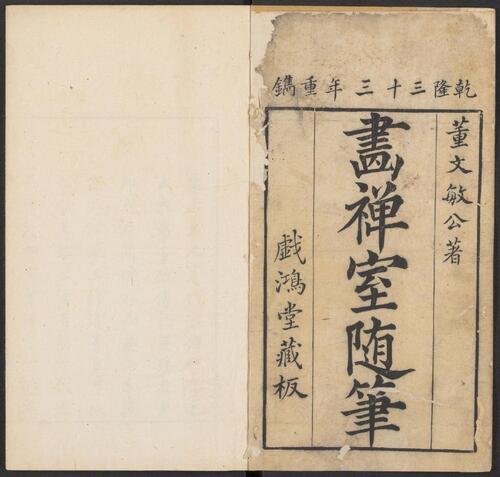 乾隆三十三年重鐫
董文敏公著
畫禅室随筆
戯鴻堂藏板